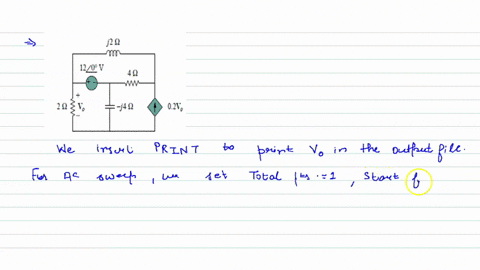 ⇒
j2 Ω
12/0° V
4 Ω
+
2 Ω V₀ -j4 Ω 0.2V₀
−
We insert PRINT to print V₀ in the output file.
For AC sweep, we set Total pts := 1, Start f